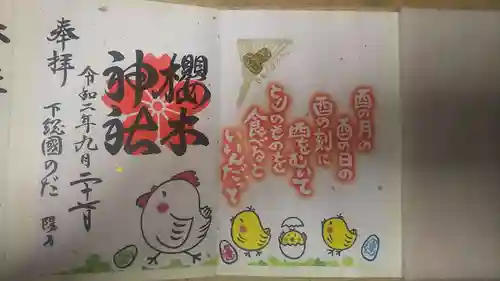 酉の月の
酉の日の
酉の刻に
酉をむいて
とりのものを
食べると
いいんだって
櫻木
神社
奉拝
令和二年九月二十一日
下総國のだ